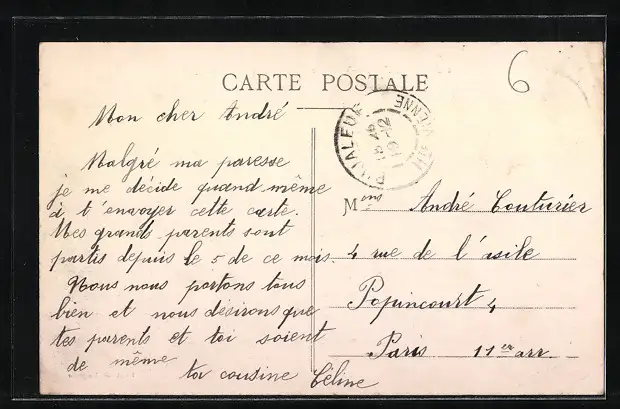 CARTE POSTALE
6
Mon cher André
Malgré ma paresse
je me décide quand même
à t'envoyer cette carte.
Mes grands parents sont
partis depuis le 5 de ce mois.
Nous nous portons tous
bien et nous désirons que
tes parents et toi soient
de même
ta cousine Céline
BUJALEUF
VIENNE
Mons André Couturier
4 rue de l'asile
Popincourt 4
Paris 11er arr.